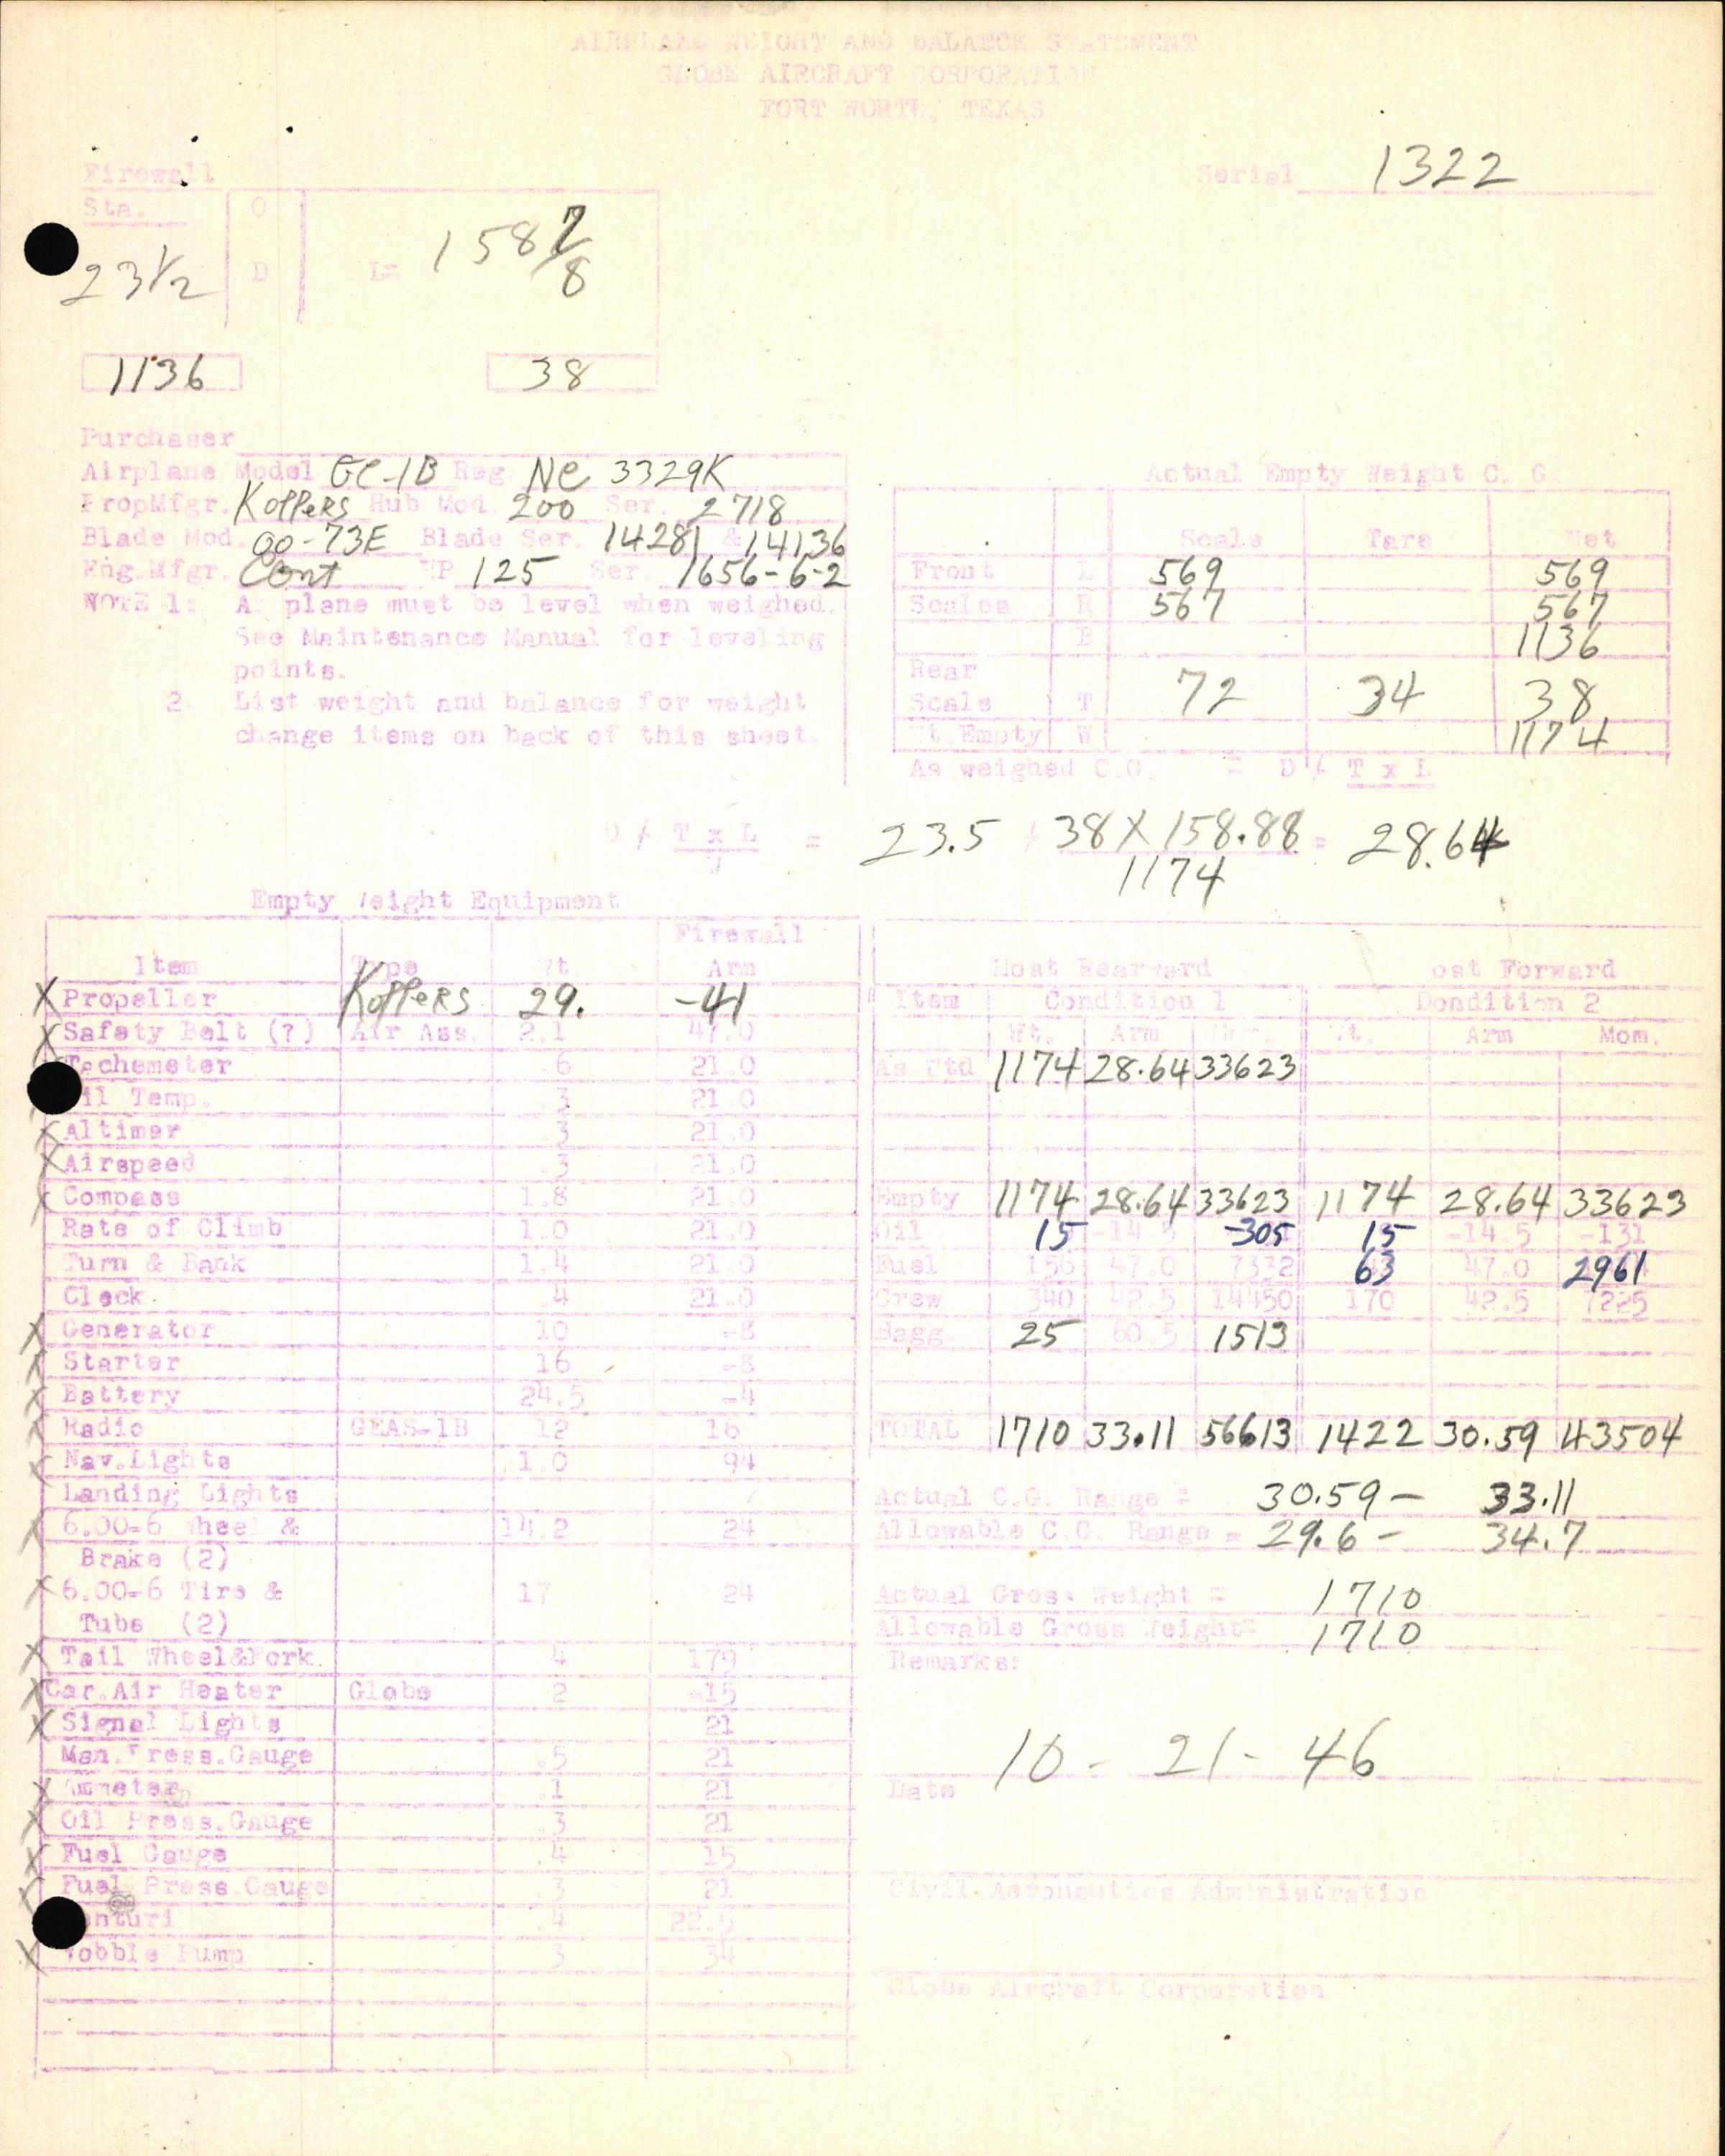 AIRPLANE WEIGHT AND BALANCE STATEMENT
GLOBE AIRCRAFT CORPORATION
FORT WORTH, TEXAS
Firewall
Serial 1322
Sta. O
23 1/2 D L= 158 7/8
1136 38
Purchaser
Airplane Model GC-1B Reg NC 3329K
PropMfgr. Koppers Hub Mod. 200 Ser. 2718
Blade Mod. 00-73E Blade Ser. 14281 & 14136
Eng.Mfgr. Cont HP 125 Ser. 1656-6-2
NOTE 1: A plane must be level when weighed.
See Maintenance Manual for leveling
points.
2. List weight and balance for weight
change items on back of this sheet.
Actual Empty Weight C. G.
Scale Tare Net
Front L 569 569
Scales R 567 567
B 1136
Rear
Scale T 72 34 38
Wt.Empty W 1174
As weighed C.G. = D / T x L
D / T x L = 23.5 / 38 X 158.88 = 28.64
W 1174
Empty Weight Equipment
Firewall
Item Type Wt. Arm
X Propeller Koppers 29. -41
X Safety Belt (?) Air Ass. 2.1 47.0
Techometer .6 21.0
il Temp. .3 21.0
X Altimer .3 21.0
X Airspeed .3 21.0
X Compass 1.8 21.0
Rate of Climb 1.0 21.0
Turn & Bank 1.4 21.0
Clock .4 21.0
X Generator 10 -8
X Starter 16 -8
X Battery 24.5 -4
X Radio GEAS-1B 12 16
X Nav.Lights 1.0 94
Landing Lights
X 6.00-6 Wheel & 14.2 24
Brake (2)
X 6.00-6 Tire & 17 24
Tube (2)
X Tail Wheel&Fork. 4 179
X Car.Air Heater Globe 2 -15
X Signal Lights 21
Man.Press.Gauge .5 21
X Ammeter .1 21
X Oil Press.Gauge .3 21
X Fuel Gauge .4 15
X Fuel Press.Gauge .3 21
enturi .4 22.5
X Wobble Pump 3 34
Most Rearward ost Forward
Item Condition 1 Dondition 2
Wt. Arm Mom. Wt. Arm Mom.
As Wtd 1174 28.64 33623
Empty 1174 28.64 33623 1174 28.64 33623
Oil 15 -14.5 -305 15 -14.5 -131
Fuel 156 47.0 7332 63 47.0 2961
Crew 340 42.5 14450 170 42.5 7225
Bagg. 25 60.5 1513
TOTAL 1710 33.11 56613 1422 30.59 43504
Actual C.G. Range = 30.59 - 33.11
Allowable C.G. Range = 29.6 - 34.7
Actual Gross Weight = 1710
Allowable Gross Weight= 1710
Remarks:
10 - 21 - 46
Date
Civil Aeronautics Administration
Globe Aircraft Corporation